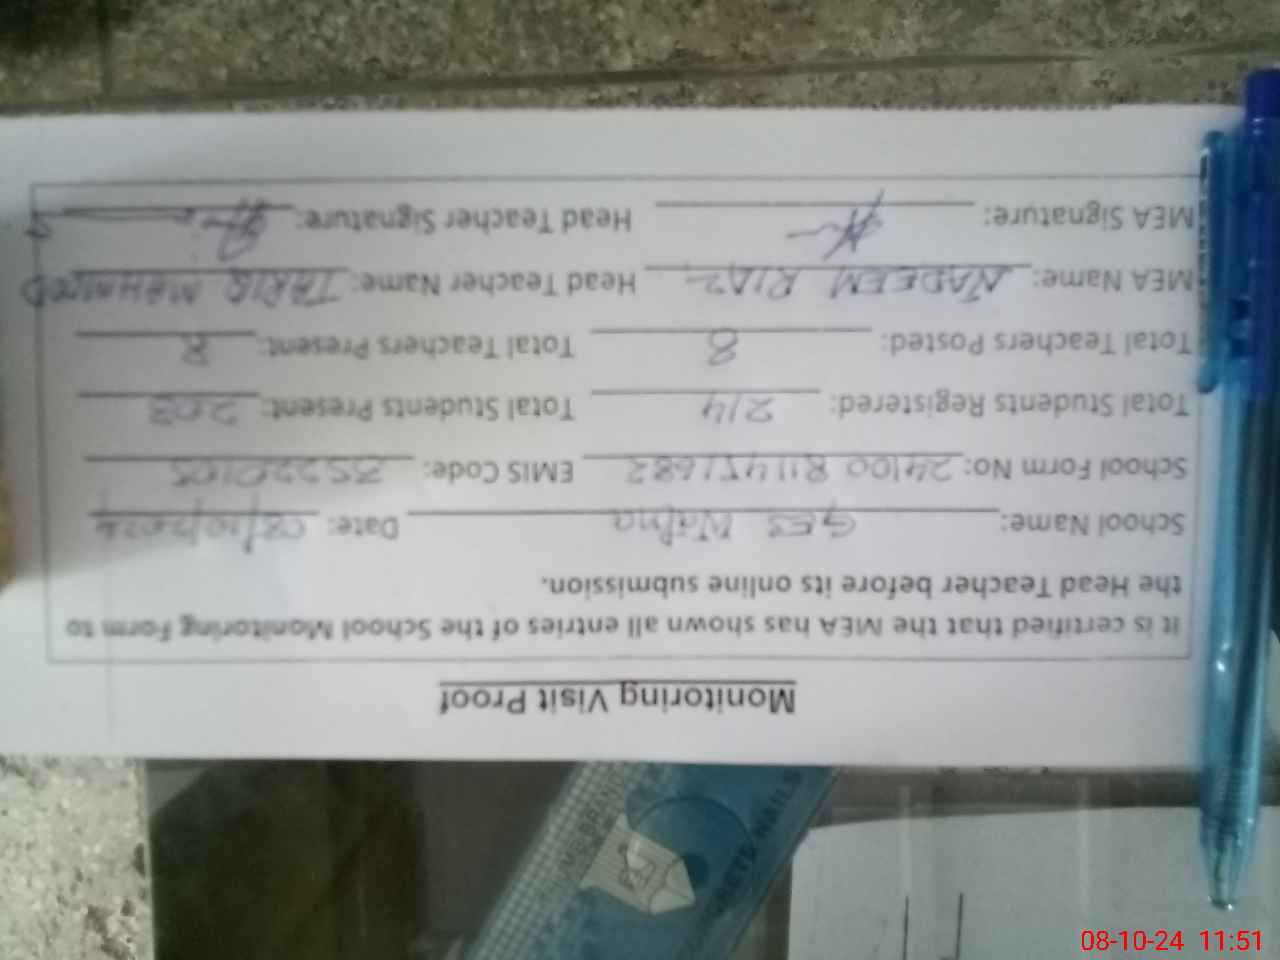 Monitoring Visit Proof
It is certified that the MEA has shown all entries of the School Monitoring Form to
the Head Teacher before its online submission.
School Name: GES Date: 08/10/2024
School Form No: EMIS Code: 35220105
Total Students Registered: 214 Total Students Present: 203
Total Teachers Posted: 8 Total Teachers Present: 8
MEA Name: NADEEM RIAZ Head Teacher Name: TARIQ MAHMOOD
MEA Signature: Head Teacher Signature:
08-10-24 11:51